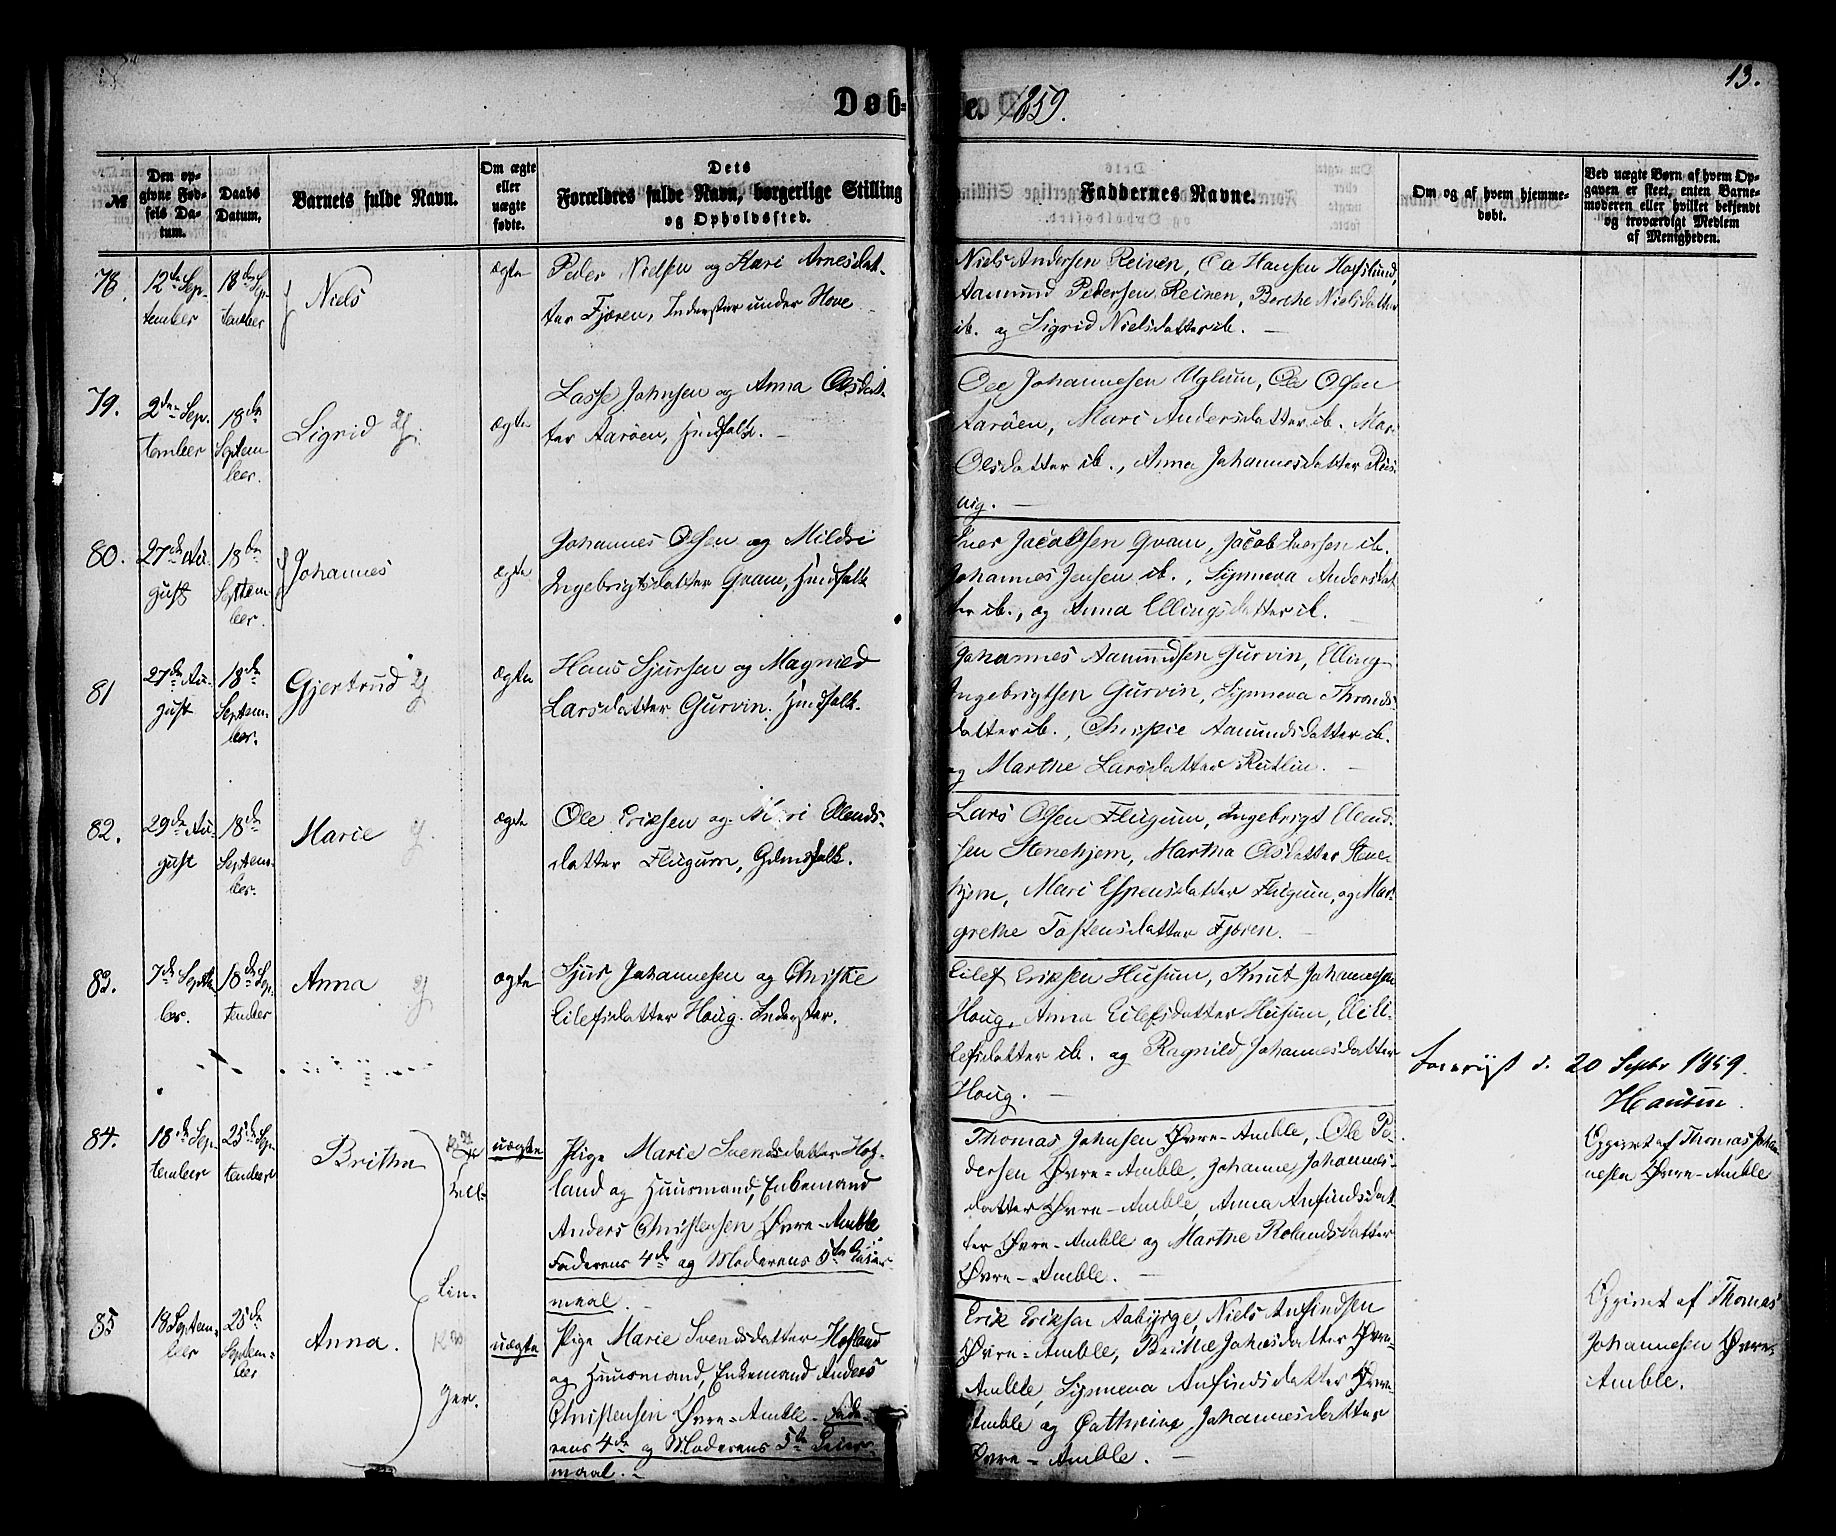 13.
Døb-
te. 1859.
№
Den op-
givne Fød-
sels Da-
tum.
Daabs
Datum.
Barnets fulde Navn.
Om ægte
eller
uægte
fødte.
Dets
Forældres fulde Navn, borgerlige Stilling
og Opholdssted.
Faddernes Navne.
Om og af hvem hjemme-
døbt.
Ved uægte Børn af hvem Op-
gaven er skeet, enten Barne-
moderen eller hvilket bekjendt
og troværdigt Medlem
af Menigheden.
78.
12te Sep-
tember
18de Sep-
tember
Niels
ægte
Peder Nielsen og Kari Arnesdat-
ter Fjæren, Inderster under Hove
Niels Andersen Reinen, Ole Hansen Hofslund,
Aamund Pedersen Reinen, Berthe Nielsdatter
ib. og Sigrid Nielsdatter ib.
79.
2den Sep-
tember
18de
Septem-
ber.
Sigrid
ægte
Lasse Johnsen og Anna Olsdat-
ter Aarøen, Huusfolk.
Ole Johannesen Uglum, Ole Olsen
Aarøen, Mari Andersdatter ib. Mari
Olsdatter ib., Anna Johannesdatter
vig.
80.
27de Au-
gust
18de
Septem-
ber.
Johannes
ægte
Johannes Olsen og Mildri
Ingebrigtsdatter Qvam, Huusfolk
Iver Jacobsen Qvam, Jacob Iversen ib.
Johannes Jensen ib., Synneva Andersdat-
ter ib., og Anna Ellingsdatter ib.
81
27de Au-
gust
18de
Septem-
ber.
Gjertrud
ægte
Hans Sjursen og Magnild
Larsdatter Gurvin. Huusfolk.
Johannes Aamundsen Gurvin, Elling
Ingebrigtsen Gurvin, Synneva Thronds-
datter ib., Christie Aamundsdatter ib.
og Marthe Larsdatter Rutlin.
82.
29de Au-
gust
18de
Septem-
ber.
Marie
ægte
Ole Eriksen og Mari Elends-
datter Flugum, Gdmsfolk.
Lars Olsen Flugum, Ingebrigt Elend-
sen Stenehjem, Martha Olsdatter Stene-
hjem, Mari Espensdatter Flugum, og Mar-
grethe Tostensdatter Fjæren.
83.
7de Septbr
ber.
18de Sep-
tember
Anna
ægte
Sjur Johannesen og Christie
Eilefsdatter Houg. Inderster.
Eilef Eriksen Husum, Knut Johannesen
Houg, Anna Eilefsdatter Husum, Eili
Eilefsdatter ib. og Ragnild Johannesdatter
Houg.
d. 20 Septbr 1859.
Hansen
84.
18de Sep-
tember
25de Sep-
tember
Britha
Tvill-
uægte
Pige Marie Svendsdatter Hof-
land og Huusmand, Enkemand
Anders Christensen Øvre-Amble
Faderens 4de og Moderens 5te Leier-
maal.
Thomas Johnsen Øvre-Amble, Ole Pe-
dersen Øvre-Amble, Johanne Johannes-
datter Øvre-Amble, Anna Anfindsdat-
ter Øvre-Amble og Marthe Rolandsdatter
Øvre-Amble.
Opgivet af Thomas Johan-
nesen Øvre-Amble
lin-
85
18 Septem-
ber
25de
Septem-
ber
Anna.
ger.
uægte
Pige Marie Svendsdatter Hofland
og Huusmand, Enkemand Anders
Christensen Øvre-Amble. Fade-
rens 4de og Moderens 5te Leier-
maal.
Erik Eriksen Aabyrge, Niels Anfindsen
Øvre-Amble, Britha Johansdatter Øvre-
Amble, Synneva Anfindsdatter Øvre-
Amble og Cathrine Johannesdatter
Øvre-Amble.
Opgivet af Thomas
Johannesen Øvre-
Amble.